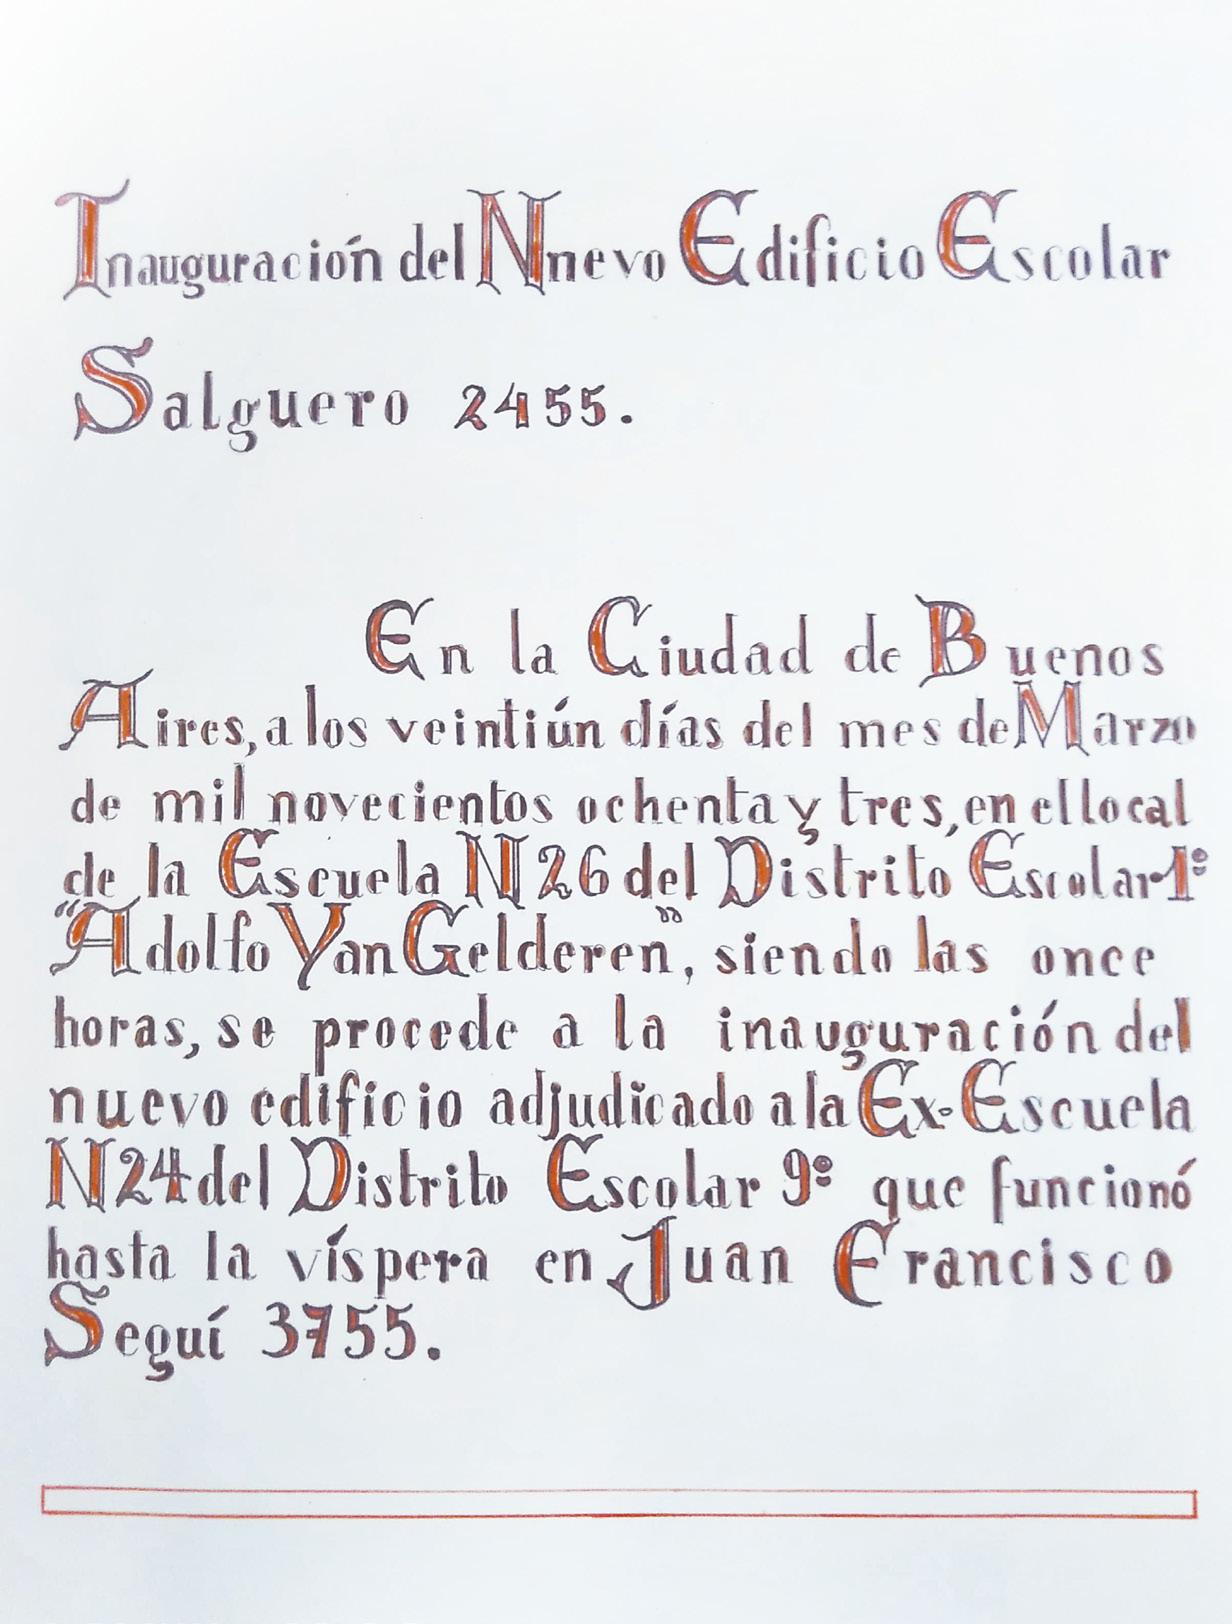 Inauguración del Nnevo Edificio Escolar
Salguero 2455.
En la Ciudad de Buenos
Aires, a los veintiún días del mes de Marzo
de mil novecientos ochenta y tres, en el local
de la Escuela N 26 del Distrito Escolar 1º
"Adolfo Van Gelderen", siendo las once
horas, se procede a la inauguración del
nuevo edificio adjudicado a la Ex-Escuela
N 24 del Distrito Escolar 9º que funcionó
hasta la víspera en Juan Francisco
Seguí 3755.